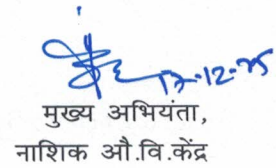 17-12-25
मुख्य अभियंता,
नाशिक औ.वि.केंद्र